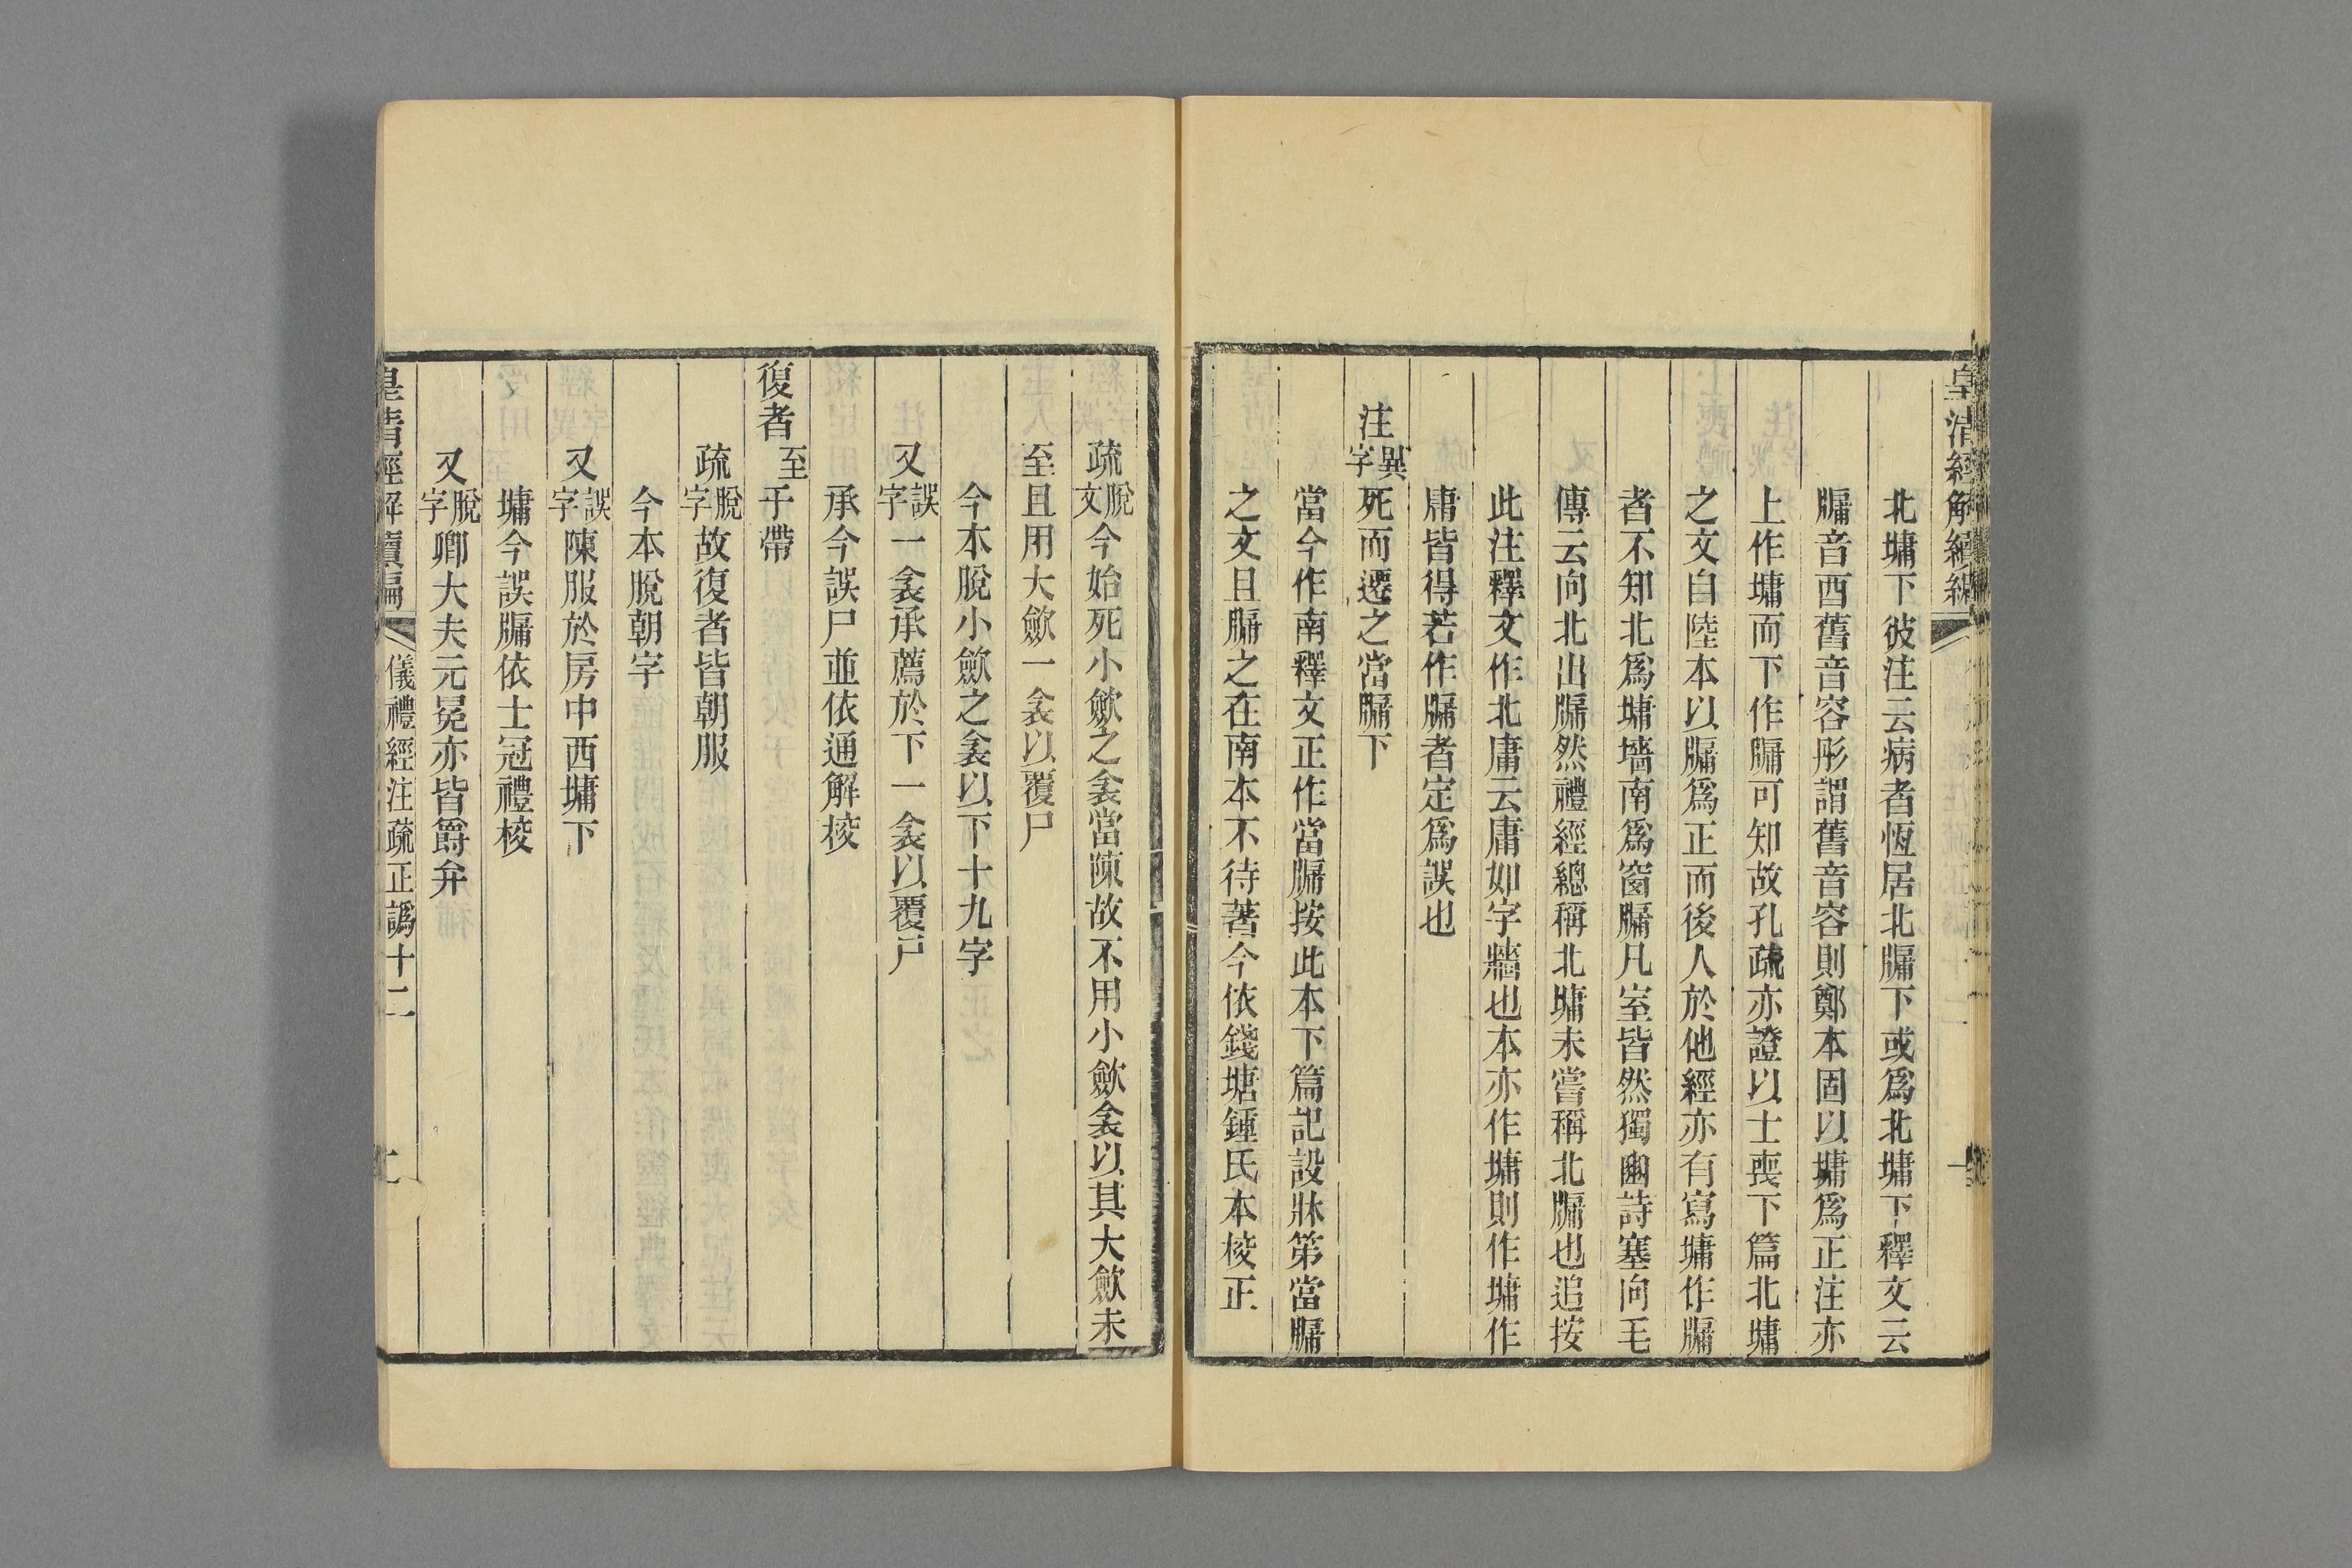 皇清經解續編
北墉下彼注云病者恆居北牖下或爲北墉下釋文云
牖音酉舊音容彤謂舊音容則鄭本固以墉爲正注亦
上作墉而下作牖可知故孔疏亦證以士喪下篇北墉
之文自陸本以牖爲正而後人於他經亦有寫墉作牖
者不知北爲墉墻南爲窗牖凡室皆然獨豳詩塞向毛
傳云向北出牖然禮經總稱北墉未嘗稱北牖也追按
此注釋文作北庸云庸如字牆也本亦作墉則作墉作
庸皆得若作牖者定爲誤也
注異字死而遷之當牖下
當今作南釋文正作當牖按此本下篇記設牀第當牖
之文且牖之在南本不待著今依錢塘鍾氏本校正
疏脫文今始死小歛之衾當陳故不用小歛衾以其大歛未
至且用大歛一衾以覆尸
今本脫小歛之衾以下十九字
又誤字一衾承薦於下一衾以覆尸
承今誤尸並依通解校
復者至于帶
疏脫字故復者皆朝服
今本脫朝字
又誤字陳服於房中西墉下
墉今誤牖依士冠禮校
又脫字卿大夫元冕亦皆爵弁
皇清經解續編 儀禮經注疏正譌十二